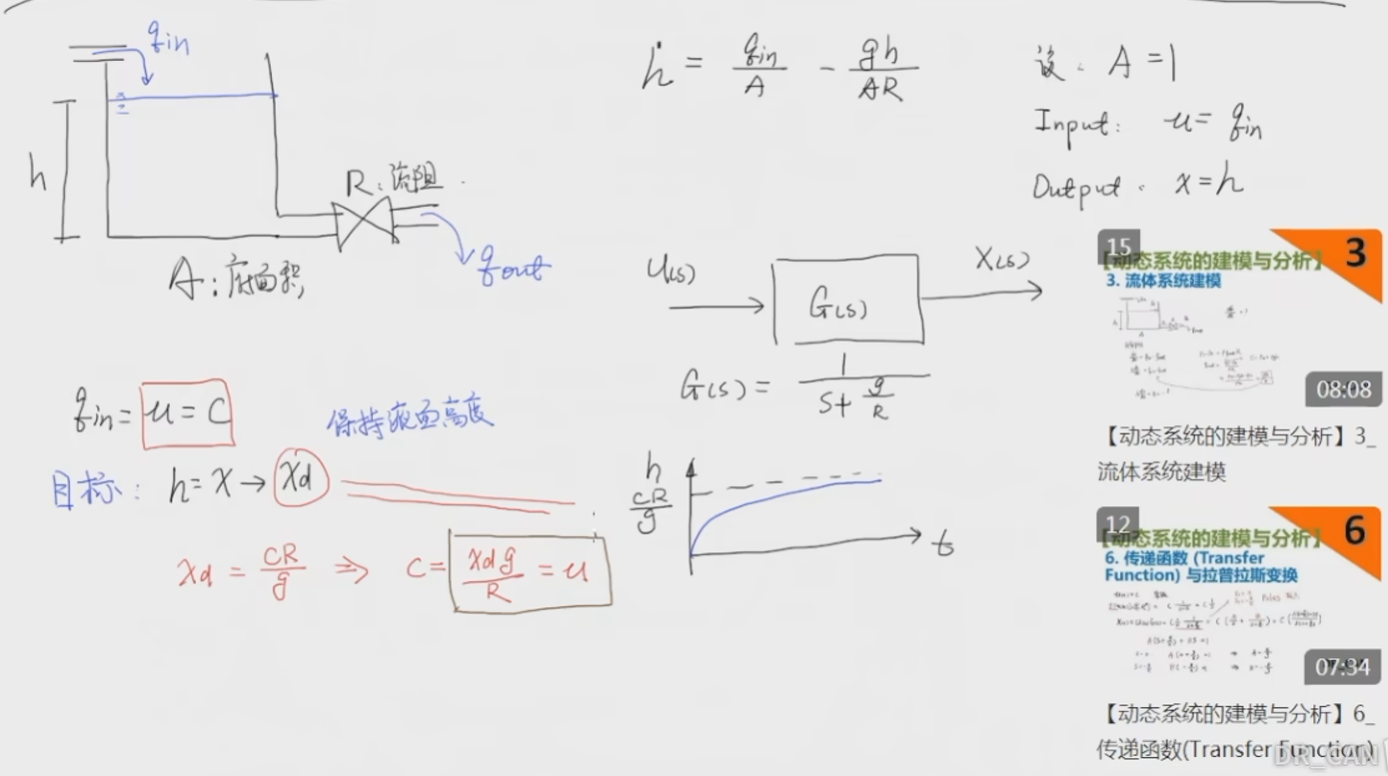 q_in
h
R：流阻
q_out
A：底面积
ḣ = q_in/A - gh/AR
设：A = 1
Input： u = q_in
Output： x = h
U(s)
G(s)
X(s)
G(s) = 1/(s + g/R)
q_in = u = C
保持液面高度
目标： h = x → x_d
x_d = CR/g ⇒ C = x_d g/R = u
h
CR/g
t
15
【动态系统的建模与分析】 3
3. 流体系统建模
08:08
【动态系统的建模与分析】3_
流体系统建模
12
【动态系统的建模与分析】 6
6. 传递函数 (Transfer
Function) 与拉普拉斯变换
07:34
【动态系统的建模与分析】6_
传递函数(Transfer Function)
DR_CAN